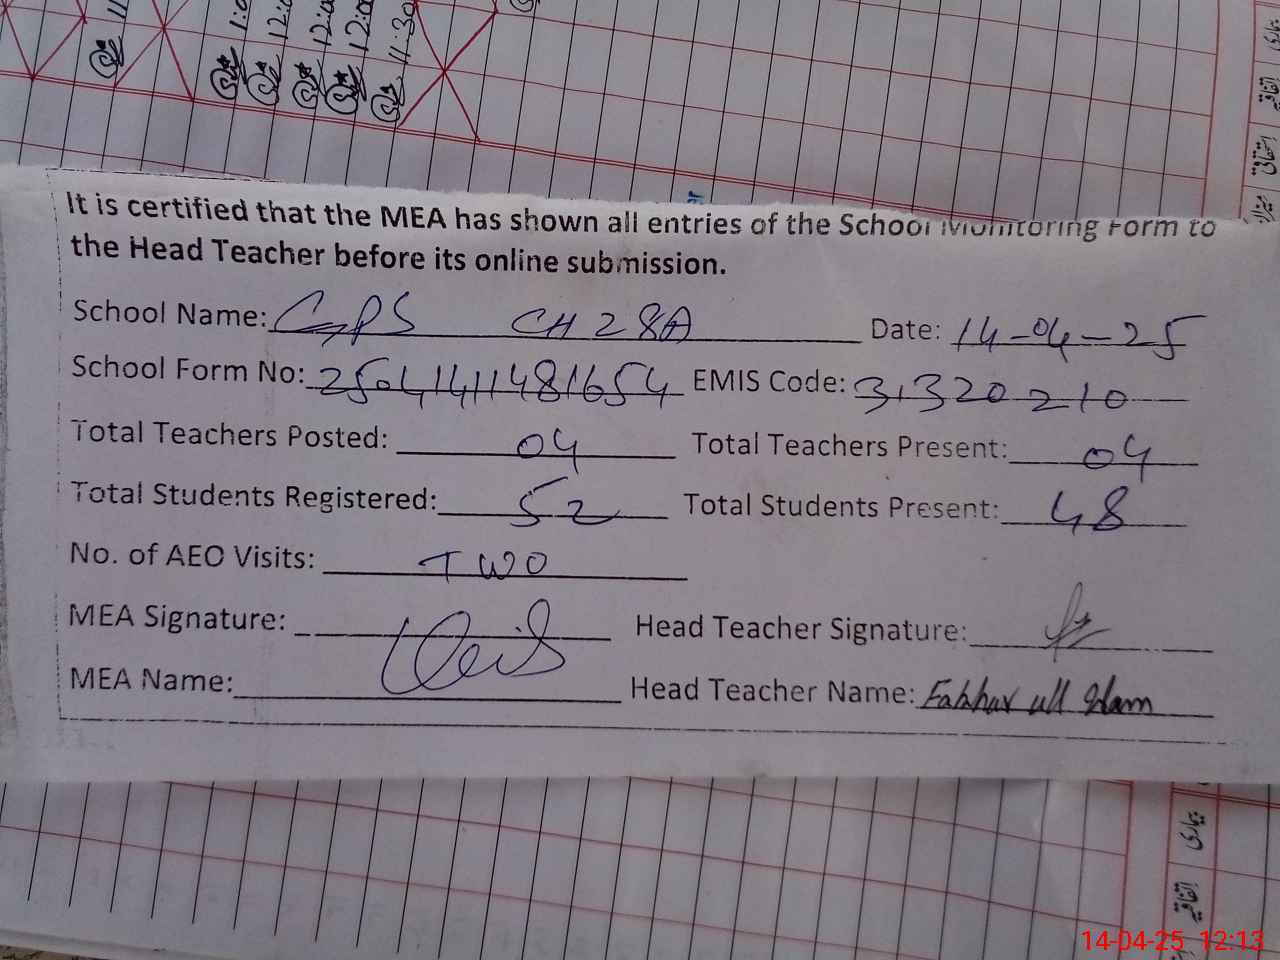 1:0
12:0
12:0
12:0
11:30
It is certified that the MEA has shown all entries of the School Monitoring Form to
the Head Teacher before its online submission.
School Name: GPS CH 28A Date: 14-04-25
School Form No: 25041411481654 EMIS Code: 31320210
Total Teachers Posted: 04 Total Teachers Present: 04
Total Students Registered: 52 Total Students Present: 48
No. of AEO Visits: TWO
MEA Signature: Head Teacher Signature:
MEA Name: Head Teacher Name: Fakhar ull Islam
اتفاقیہ
بیماری
اتفاقیہ
14-04-25 12:13